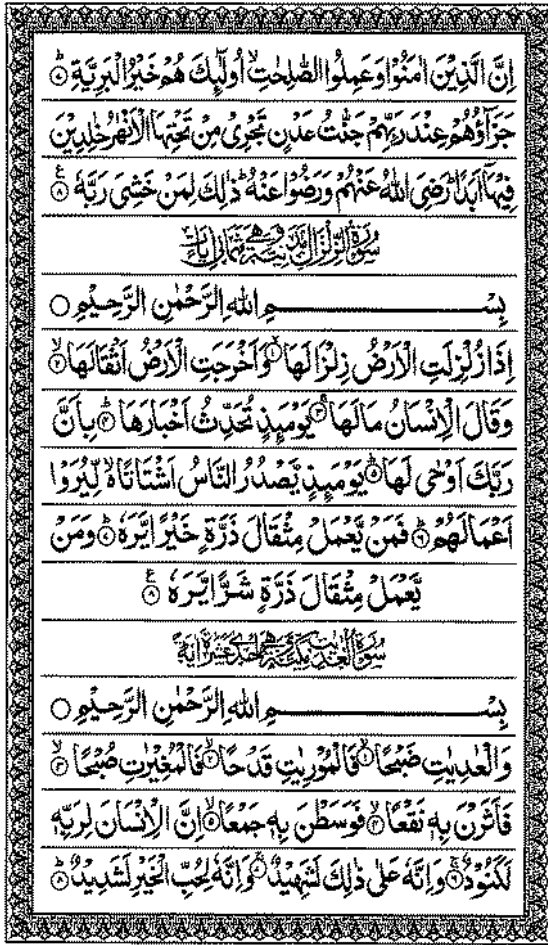 اِنَّ الَّذِيْنَ اٰمَنُوْا وَعَمِلُوا الصّٰلِحٰتِ ۙ اُولٰٓئِكَ هُمْ خَيْرُ الْبَرِيَّةِ ؕ ۷
جَزَآؤُهُمْ عِنْدَ رَبِّهِمْ جَنّٰتُ عَدْنٍ تَجْرِيْ مِنْ تَحْتِهَا الْاَنْهٰرُ خٰلِدِيْنَ
فِيْهَاۤ اَبَدًا ؕ رَضِيَ اللّٰهُ عَنْهُمْ وَرَضُوْا عَنْهُ ؕ ذٰلِكَ لِمَنْ خَشِيَ رَبَّهٗ ۸
سُوْرَةُ الزِّلْزَالِ مَدَنِيَّةٌ وَّهِيَ ثَمَانُ اٰيَاتٍ
بِسْمِ اللّٰهِ الرَّحْمٰنِ الرَّحِيْمِ
اِذَا زُلْزِلَتِ الْاَرْضُ زِلْزَالَهَا ۙ ۱ وَاَخْرَجَتِ الْاَرْضُ اَثْقَالَهَا ۙ ۲
وَقَالَ الْاِنْسَانُ مَا لَهَا ۚ ۳ يَوْمَئِذٍ تُحَدِّثُ اَخْبَارَهَا ؕ ۴ بِاَنَّ
رَبَّكَ اَوْحٰى لَهَا ؕ ۵ يَوْمَئِذٍ يَّصْدُرُ النَّاسُ اَشْتَاتًا ۙ لِّيُرَوْا
اَعْمَالَهُمْ ؕ ۶ فَمَنْ يَّعْمَلْ مِثْقَالَ ذَرَّةٍ خَيْرًا يَّرَهٗ ؕ ۷ وَمَنْ
يَّعْمَلْ مِثْقَالَ ذَرَّةٍ شَرًّا يَّرَهٗ ۸
سُوْرَةُ الْعٰدِيٰتِ مَكِّيَّةٌ وَّهِيَ اِحْدٰى عَشْرَةَ اٰيَةً
بِسْمِ اللّٰهِ الرَّحْمٰنِ الرَّحِيْمِ
وَالْعٰدِيٰتِ ضَبْحًا ۙ ۱ فَالْمُوْرِيٰتِ قَدْحًا ۙ ۲ فَالْمُغِيْرٰتِ صُبْحًا ۙ ۳
فَاَثَرْنَ بِهٖ نَقْعًا ۙ ۴ فَوَسَطْنَ بِهٖ جَمْعًا ۙ ۵ اِنَّ الْاِنْسَانَ لِرَبِّهٖ
لَكَنُوْدٌ ۚ ۶ وَاِنَّهٗ عَلٰى ذٰلِكَ لَشَهِيْدٌ ۚ ۷ وَاِنَّهٗ لِحُبِّ الْخَيْرِ لَشَدِيْدٌ ؕ ۸